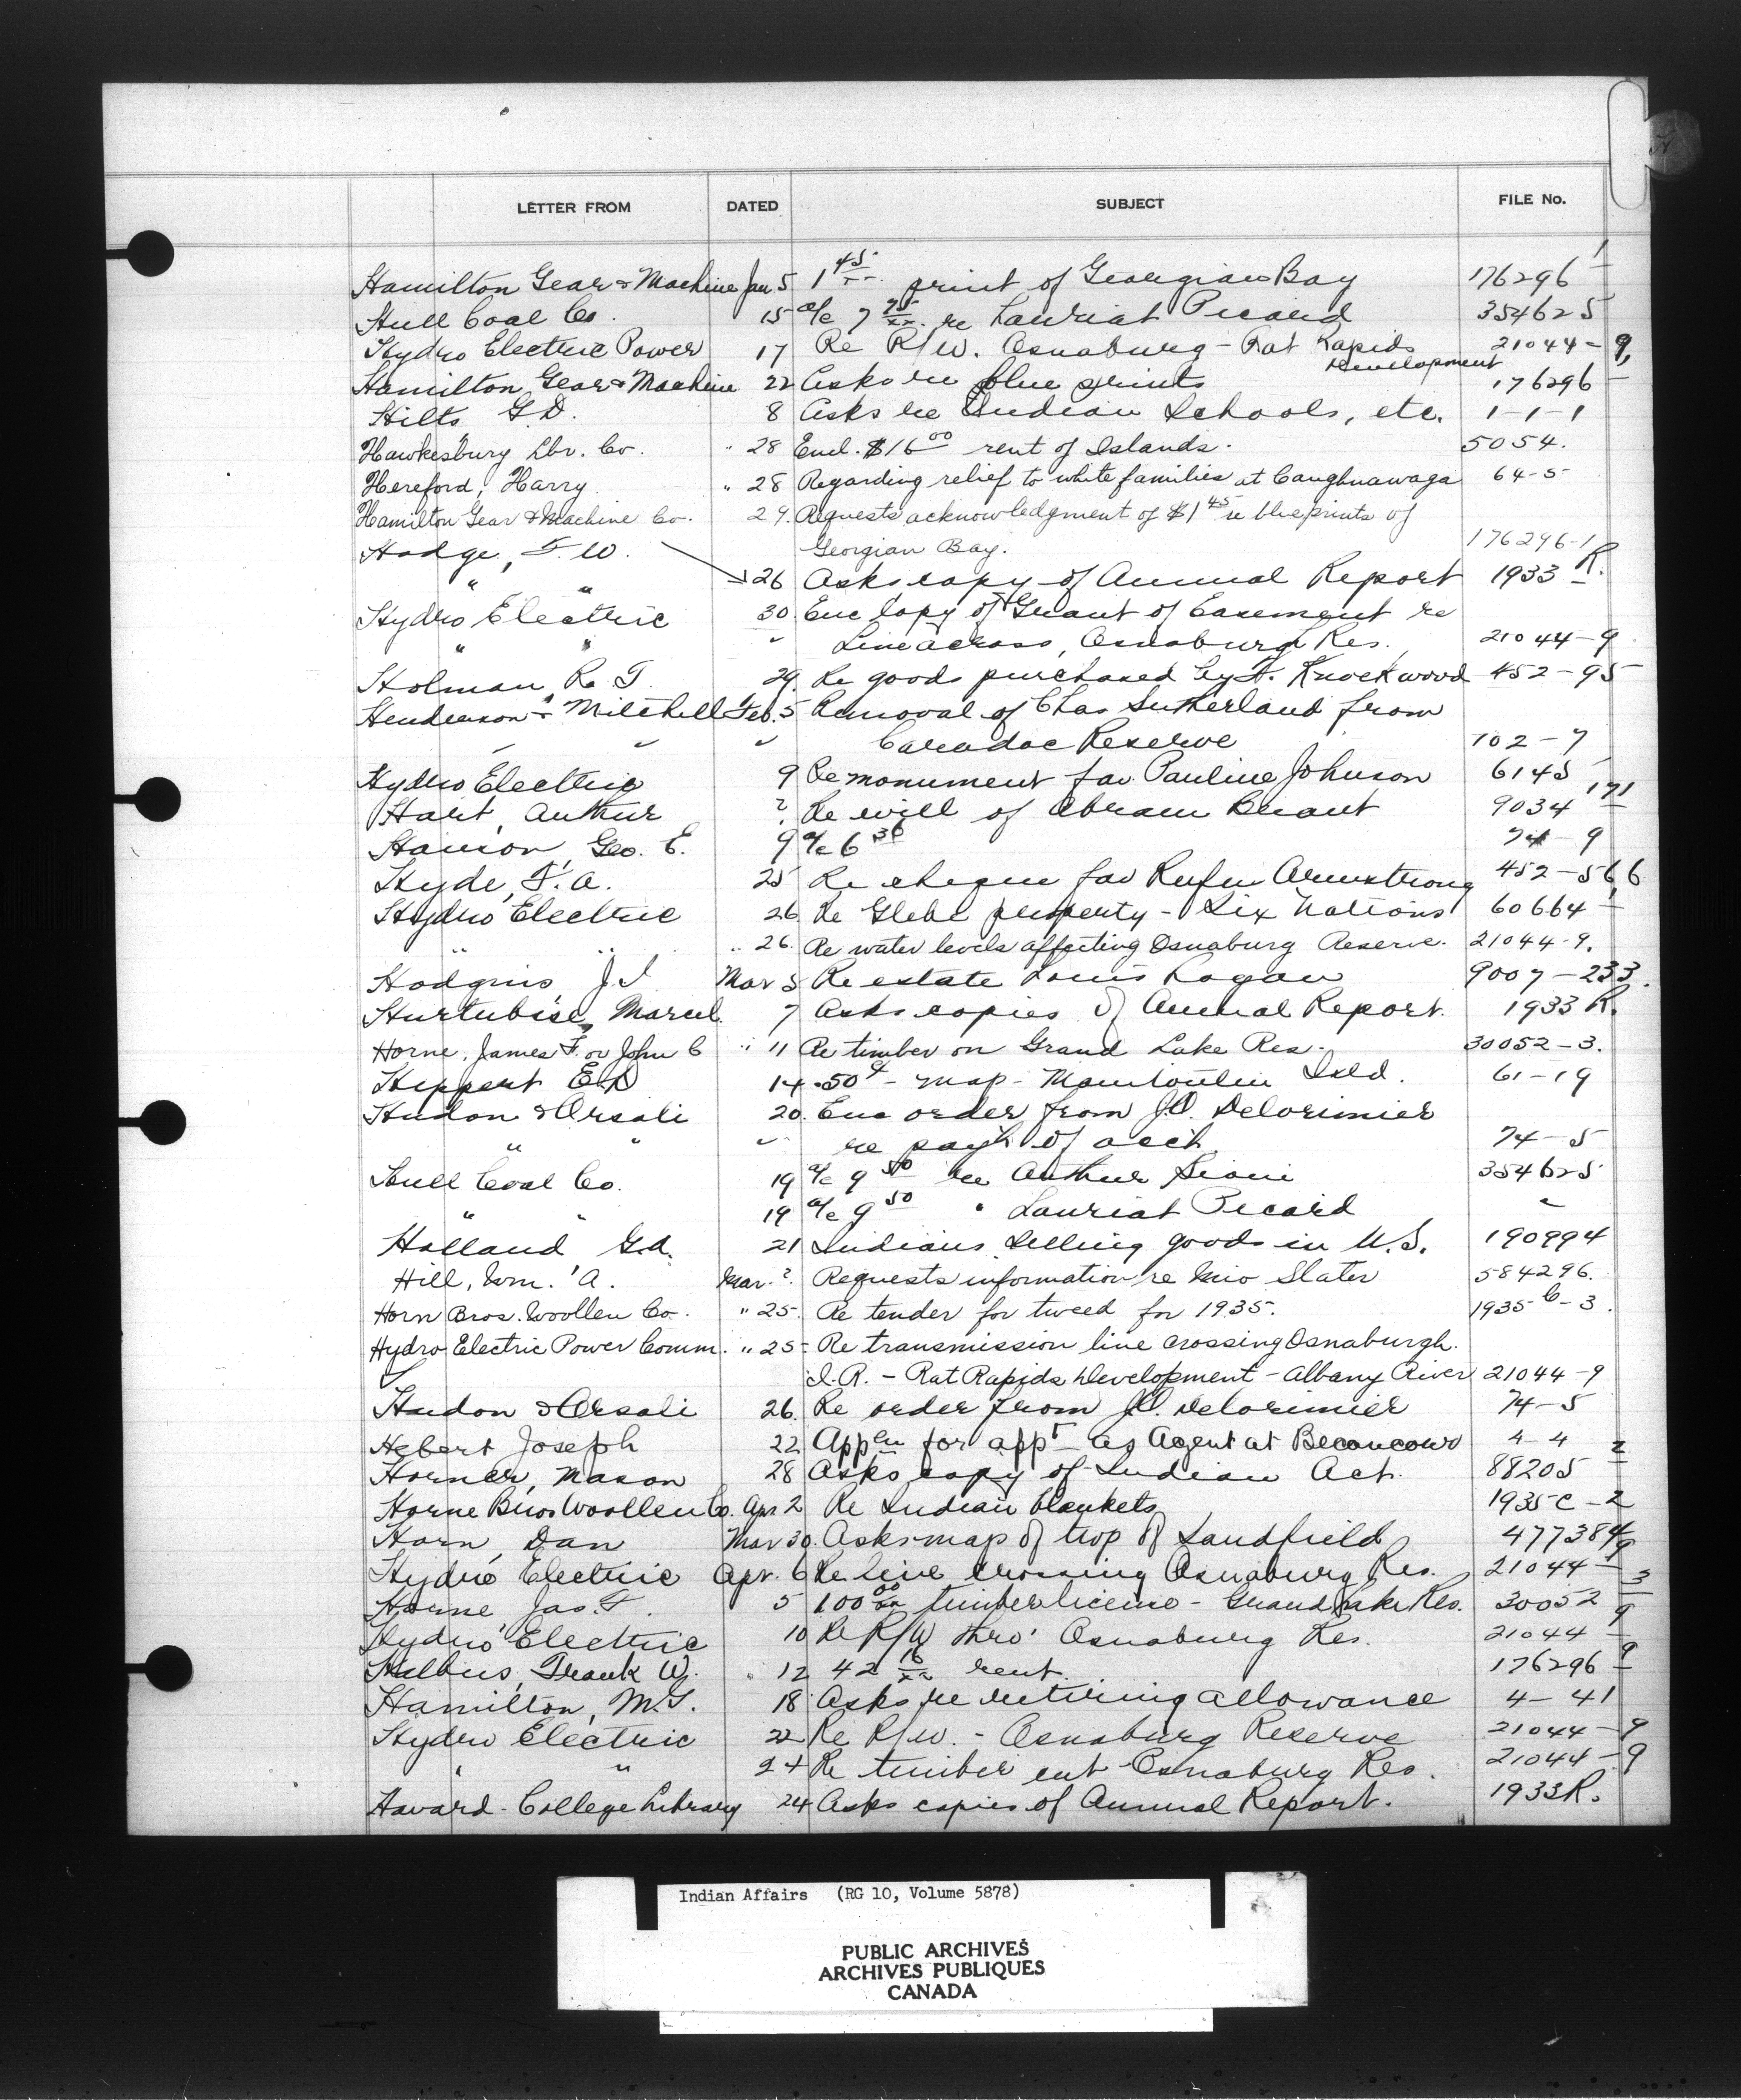 LETTER FROM DATED SUBJECT FILE No.
Hamilton Gear & Machine Jan 5 1 45/xx print of Georgian Bay 176296-1
Hull Coal Co. 15 a/c 7 75/xx re Lauriat Picard 354625
Hydro Electric Power 17 Re R/W. Osnaburg - Rat Rapids 21044-9
Development
Hamilton Gear & Machine 22 Asks re blue prints 176296-1
Hilts G.D. 8 Asks re Indian Schools, etc. 1-1-1
Hawkesbury Lbr. Co. " 28 Encl. $16 00 rent of Islands. 5054.
Hereford, Harry " 28 Regarding relief to white families at Caughnawaga 64-5
Hamilton Gear & Machine Co. 29. Requests acknowledgment of $1 45 re blueprints of
Georgian Bay. 176296-1
Hodge, F W.
" " 26 Asks copy of Annual Report 1933 R.
Hydro Electric 30. Enc copy of Grant of Easement re
" " " Line across Osnaburg Res. 21044-9
Holman, R. T. 29. Re goods purchased by F. Knockwood 452-95
Henderson & Mitchell Feb. 5 Removal of Chas Sutherland from
" " " Caradoc Reserve 102-7
Hydro Electric 9 Re monument for Pauline Johnson 6145
Hart, Arthur ? Re will of Abram Brant 9034-171
Hanson, Geo. E. 9 a/c 6 36 74-9
Hyde, F. A. 25 Re cheque for Rufus Armstrong 452-566
Hydro Electric 26 Re Glebe property - Six Nations 60664-1
" " " 26. Re water levels affecting Osnaburg Reserve. 21044-9.
Hodgins, J. I Mar 5 Re estate Louis Logan 9007-233.
Hurtubise, Marcel 7 Asks copies of Annual Report. 1933 R.
Horne, James F. or John C " 11 Re timber on Grand Lake Res. 30052-3.
Heppert E.D 14 .50¢ - map - Manitoulin Isld. 61-19
Hudon & Orsali 20. Enc order from J.O. Delorimier
" " " re pay't of acct 74-5
Hull Coal Co. 19 a/c 9 50 re Arthur Sioui 354625
" " 19 a/c 9 50 " Lauriat Picard "
Holland G.A. 21 Indians selling goods in U.S. 190994
Hill, Wm. A. Mar. ? Requests information re Mio Slater 584296.
Horn Bros. Woollen Co. " 25. Re tender for tweed for 1935. 1935 C-3.
Hydro Electric Power Comm. " 25 Re transmission line crossing Osnaburgh.
I.R. - Rat Rapids Development - Albany River 21044-9
Hudon & Orsali 26. Re order from J.O. Delorimier 74-5
Hebert Joseph 22 Appen for appt as Agent at Becancour 4-4
Horner, Mason 28 Asks copy of Indian Act. 88205-2
Horne Bros Woollen Co. Apr 2 Re Indian blankets 1935 C-2
Horn, Dan Mar 30. Asks map of twp of Sandfield 477384
Hydro Electric Apr. 6 Re line crossing Osnaburg Res. 21044-9
Horne, Jas. F. 5 100 00/xx timber license - Grand Lake Res. 30052-3
Hydro Electric 10 Re R/W thro' Osnaburg Res. 21044-9
Frank W. " 12 42 16/xx rent. 176296-9
Hamilton, M.S. 18 Asks re retiring allowance 4-41
Hydro Electric 22 Re R/W. - Osnaburg Reserve 21044-9
" " 24 Re timber cut Osnaburg Res. 21044-9
Havard College Library 24 Asks copies of Annual Report. 1933R.
Indian Affairs (RG 10, Volume 5878)
PUBLIC ARCHIVES
ARCHIVES PUBLIQUES
CANADA